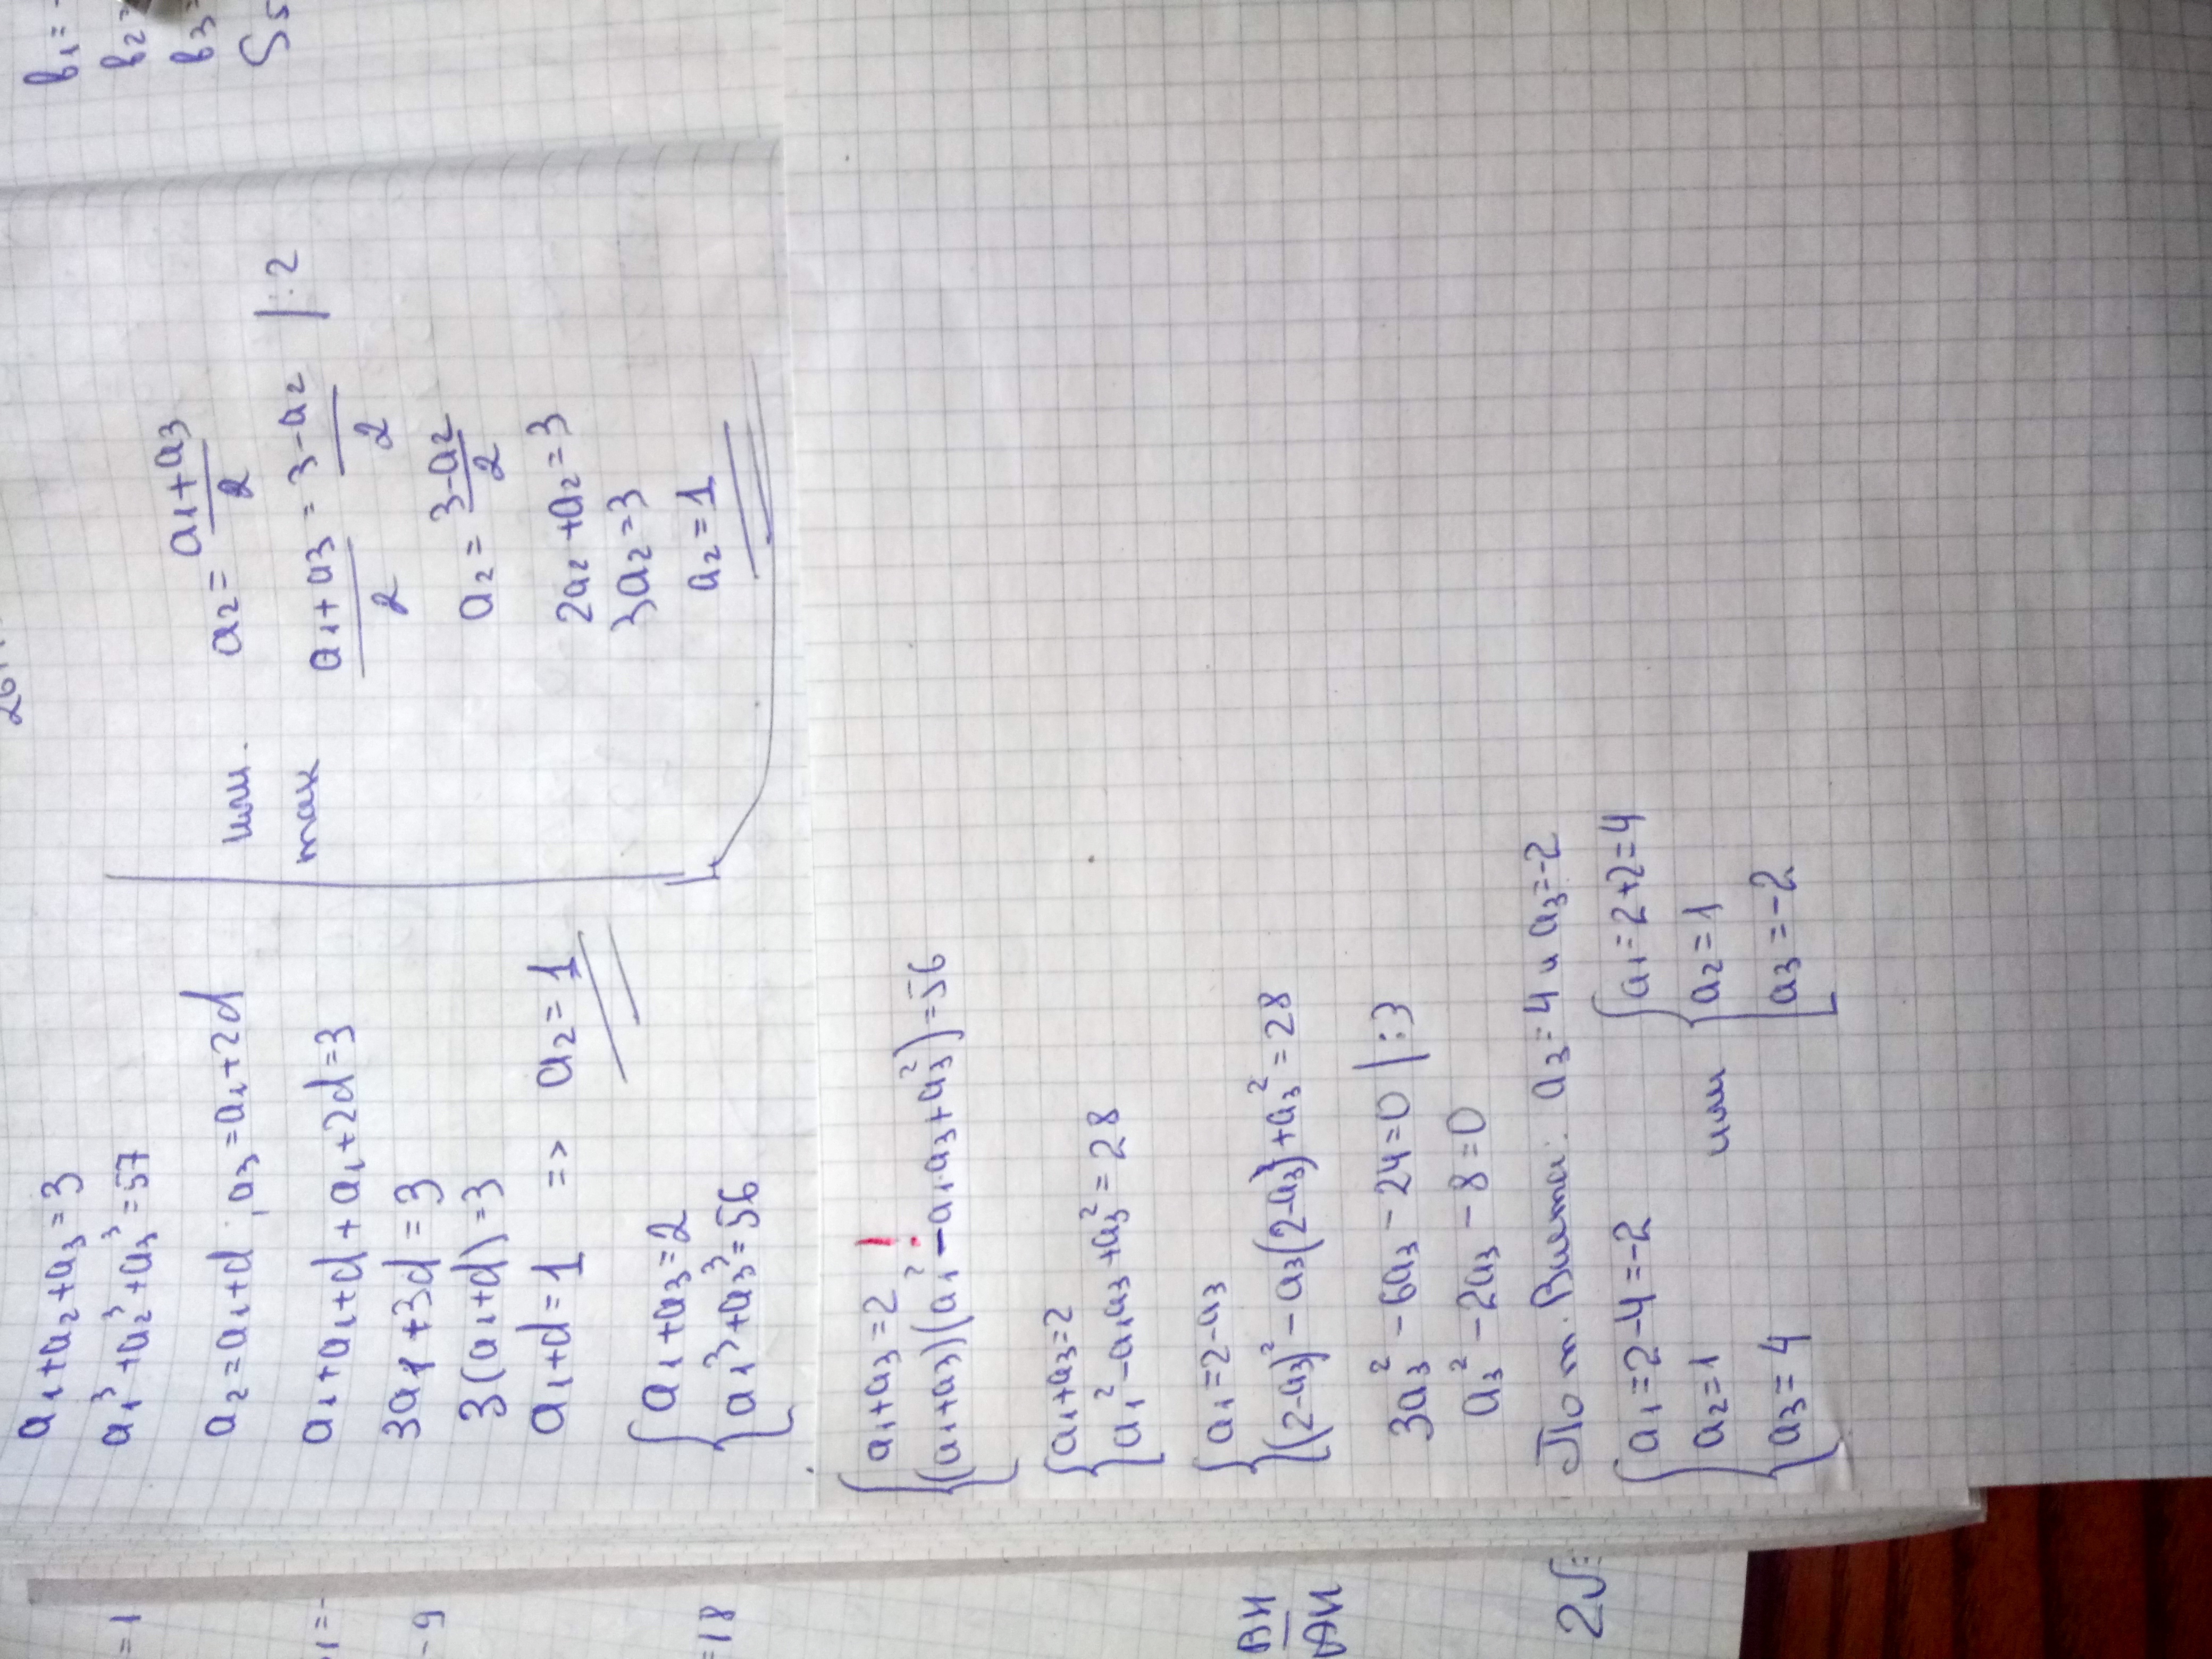 a₁+a₂+a₃=3
a₁³+a₂³+a₃³=57
a₂=a₁+d; a₃=a₁+2d
a₁+a₁+d+a₁+2d=3
3a₁+3d=3
3(a₁+d)=3
a₁+d=1 => a₂=1
или так
a₂=(a₁+a₃)/2
(a₁+a₃)/2=(3-a₂)/2 |:2
a₂=(3-a₂)/2
2a₂+a₂=3
3a₂=3
a₂=1
{a₁+a₃=2
{a₁³+a₃³=56
{a₁+a₃=2 !
{(a₁+a₃)(a₁²-a₁·a₃+a₃²)=56
{a₁+a₃=2
{a₁²-a₁a₃+a₃²=28
{a₁=2-a₃
{(2-a₃)²-a₃(2-a₃)+a₃²=28
3a₃²-6a₃-24=0 |:3
a₃²-2a₃-8=0
По т. Виета: a₃=4 и a₃=-2
{a₁=2-4=-2
{a₂=1
{a₃=4
или
{a₁=2+2=4
{a₂=1
{a₃=-2
в₁=
в₂=
в₃=
S₅
=1
-9
=18
ВН